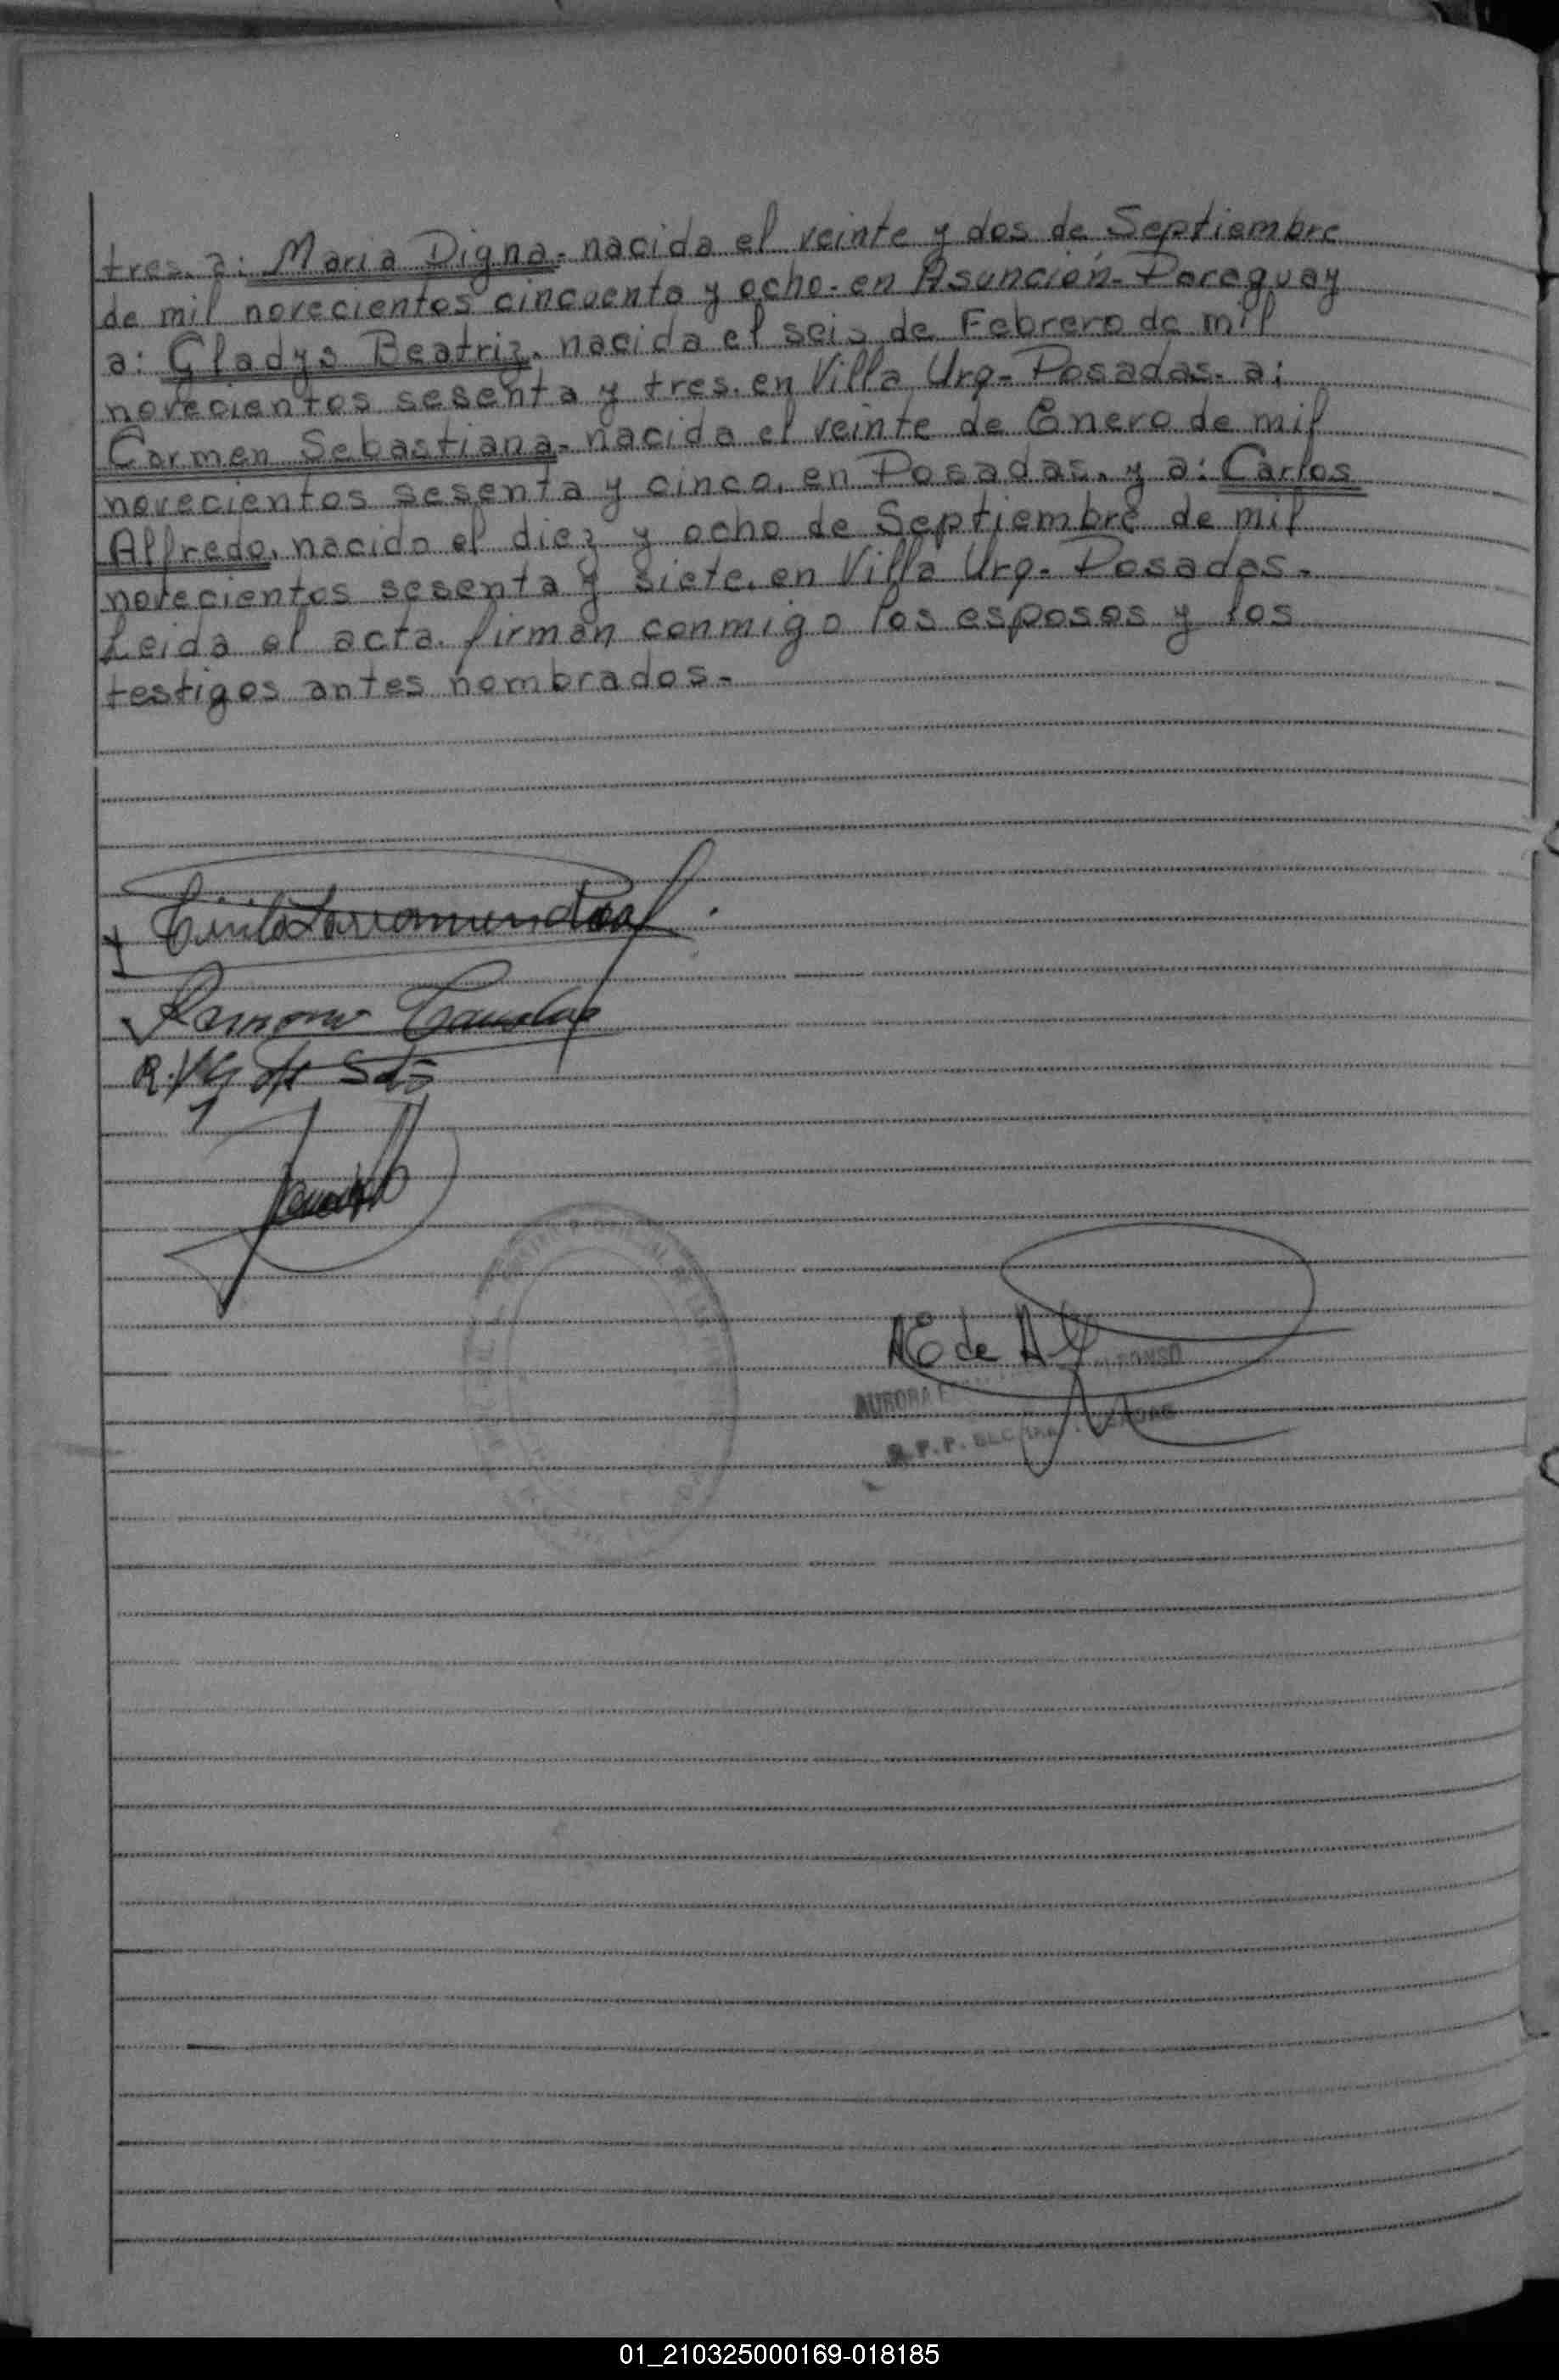 tres. a: Maria Digna- nacida el veinte y dos de Septiembre
de mil novecientos cincuenta y ocho- en Asunción- Paraguay
a: Gladys Beatriz. nacida el seis de Febrero de mil
novecientos sesenta y tres. en Villa Urq- Posadas- a:
Carmen Sebastiana- nacida el veinte de Enero de mil
novecientos sesenta y cinco. en Posadas. y a: Carlos
Alfredo. nacido el diez y ocho de Septiembre de mil
novecientos sesenta y siete. en Villa Urq- Posadas-
Leida el acta. firman conmigo los esposos y los
testigos antes nombrados-
Ramona
AE de A
AURORA
01_210325000169-018185